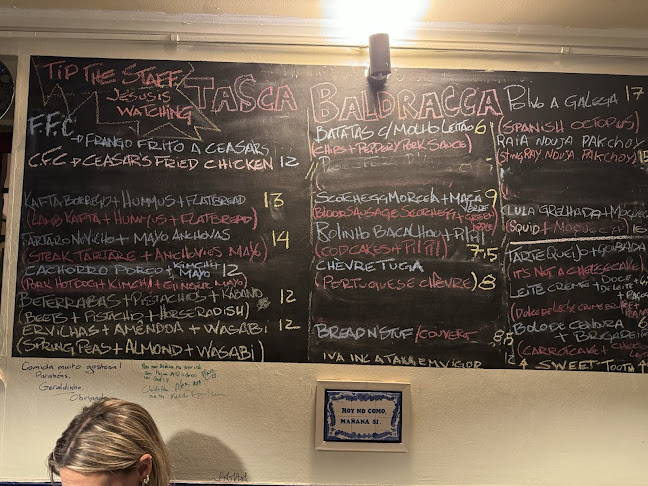 TIP THE STAFF
JESUS IS
WATCHING
TASCA BALDRACCA
F.F.C
FRANGO FRITO A CEASARS
C.F.C → CEASARS FRIED CHICKEN 12
KAFTA BORREGO + HUMMUS + FLATBREAD 13
(LAMB KAFTA + HUMMUS + FLATBREAD)
TARTARO NOVILHO + MAYO ANCHOVAS 14
(STEAK TARTARE + ANCHOVIES MAYO)
CACHORRO PORCO + KIMCHI + MAYO 12
(PORK HOTDOG + KIMCHI + GINGER MAYO)
BETERRABAS + PISTACHIOS + RÁBANO 12
(BEETS + PISTACHO + HORSERADISH)
ERVILHAS + AMENDOA + WASABI 12
(SPRING PEAS + ALMOND + WASABI)
BATATAS C/ MOLHO LEITAO 6
(CHIPS + PEPPERY PORK SAUCE)
SCOTCHEGG MORCELA + MAÇA VERDE 9
(BLOOD SAUSAGE SCOTCHEGG + GREEN
ROLINHO BACALHAU + PILPIL
(CODCAKES + PILPIL) 7.5
CHEVRE TUGA
(PORTUGUESE CHÈVRE) 8
BREAD N STUF / COUVERT 8.5
IVA INC A TAXA EM VIGOR
POLVO A GALEGA 17
(SPANISH OCTOPUS)
RAIA NDUJA PAKCHOY
(STINGRAY NDUJA PAKCHOY) 15
LULA GRELHADA + MOQUECA
(SQUID + MOQUECA)
TARTE QUEIJO + GOIABADA
(IT'S NOT A CHEESECAKE)
LEITE CREME + DOCE DE LEITE +
(DOLCE DE LECHE CREME BRULEE +
BOLO DE CENOURA + BRIGADEIRO 6
(CARROTCAKE +
SWEET TOOTH
Comida muito gostosa!
Parabéns.
Geraldinho
Obrigado
HOY NO COMO,
MAÑANA SI.